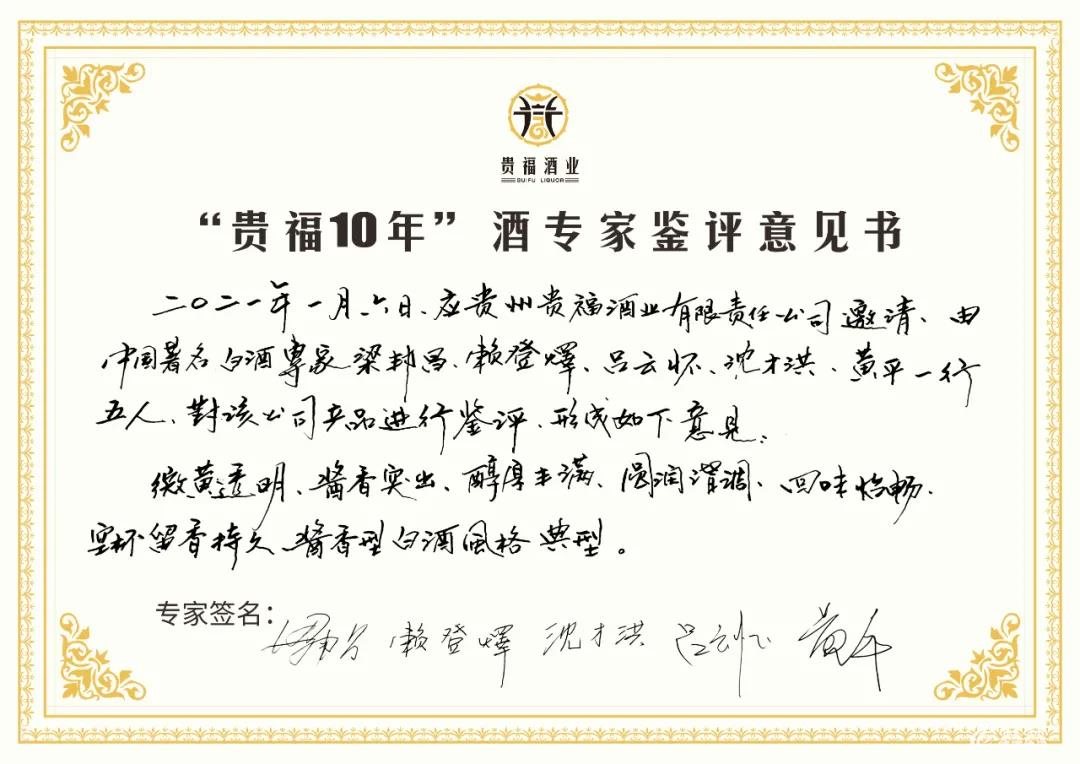 贵福酒业
GUIFU LIQUOR
“贵福10年”酒专家鉴评意见书
二〇二一年一月六日、应贵州贵福酒业有限责任公司邀请、由
中国著名白酒專家梁邦昌、賴登燡、吕云怀、沈才洪、黄平一行
五人、對该公司产品进行鉴评、形成如下意見：
微黄透明、酱香突出、醇厚丰满、圆润谐调、回味怡畅、
空杯留香持久、酱香型白酒風格典型。
专家签名：
梁邦昌 賴登燡 沈才洪 吕云怀 黄平